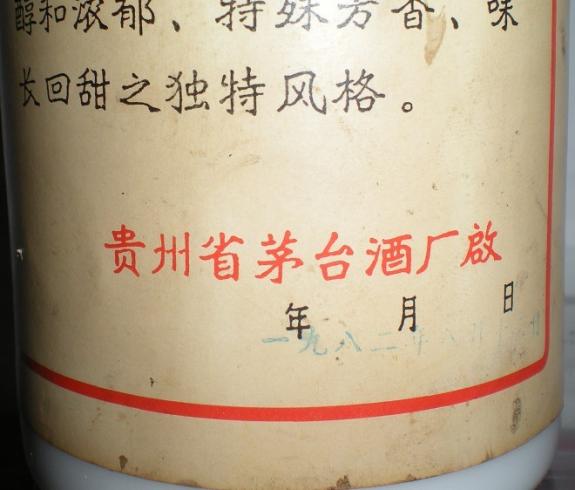 醇和浓郁、特殊芳香、味
长回甜之独特风格。
贵州省茅台酒厂啟
年 月 日
一九八二年八月